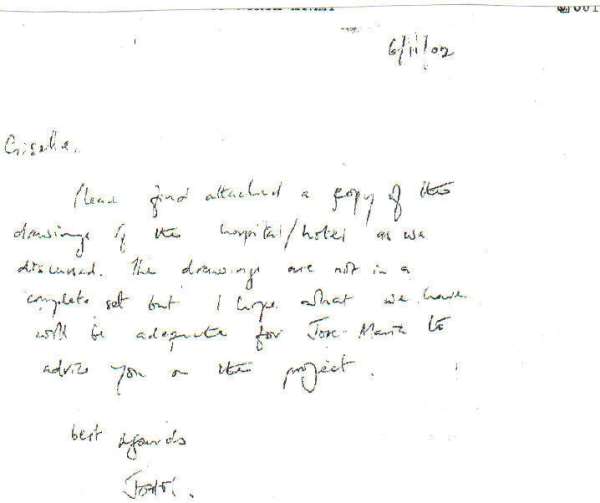 001
6/11/02
Gisele.
Please find attached a copy of the
drawings of the hospital/hotel as we
discussed. The drawings are not in a
complete set but I hope what we have
will be adequate for Jose-Maria to
advise you on the project.
best regards